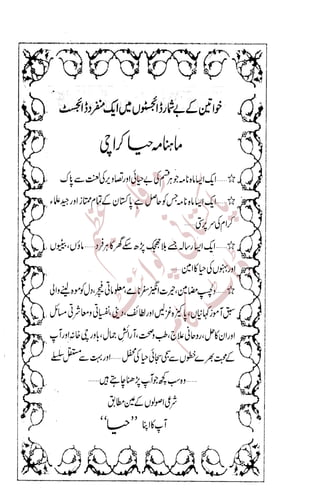 خواتین کے بے شمار ڈائجسٹوں میں ایک منفرد ڈائجسٹ
ماہنامہ حیا کراچی
☆ ایک ایسا ماہ نامہ جو ہر قسم کی بے حیائی اور تصاویر کی لعنت سے پاک
☆ ایک ایسا ماہ نامہ جس کو حاصل ہے پاکستان کے تمام ممتاز اور جید علماء
کرام کی سرپرستی
☆ ایک ایسا رسالہ جسے بلا جھجک پڑھ سکے گھر کا ہر فرد ماؤں، بیٹیوں
اور بہنوں کی حیا کا امین
☆ دلچسپ مضامین، حیرت انگیز سفرنامے، معلوماتی فیچر، دل کو موہ لینے والی
سبق آموز کہانیاں، پاکیزہ غزلیں اور لطائف، دینی، نفسیاتی و معاشرتی مسائل
اور ان کا حل، روحانی علاج، طب و صحت، آرائش جمال، باورچی خانہ اور آپ
کے محبت بھرے خطوط سے سجی سجائی حیا کی محفل اور بہت سے مستقل سلسلے
وہ سب کچھ جو آپ پڑھنا چاہتے ہیں
شرعی اصولوں کے عین مطابق
آپ کا اپنا "حیا"